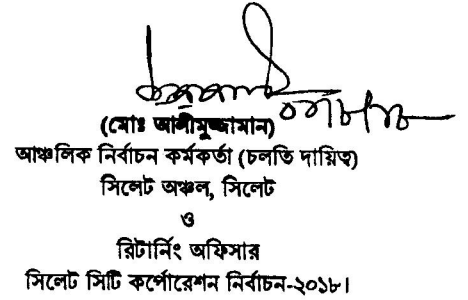 (মোঃ আলীমুজ্জামান)
আঞ্চলিক নির্বাচন কর্মকর্তা (চলতি দায়িত্ব)
সিলেট অঞ্চল, সিলেট
ও
রিটার্নিং অফিসার
সিলেট সিটি কর্পোরেশন নির্বাচন-২০১৮।